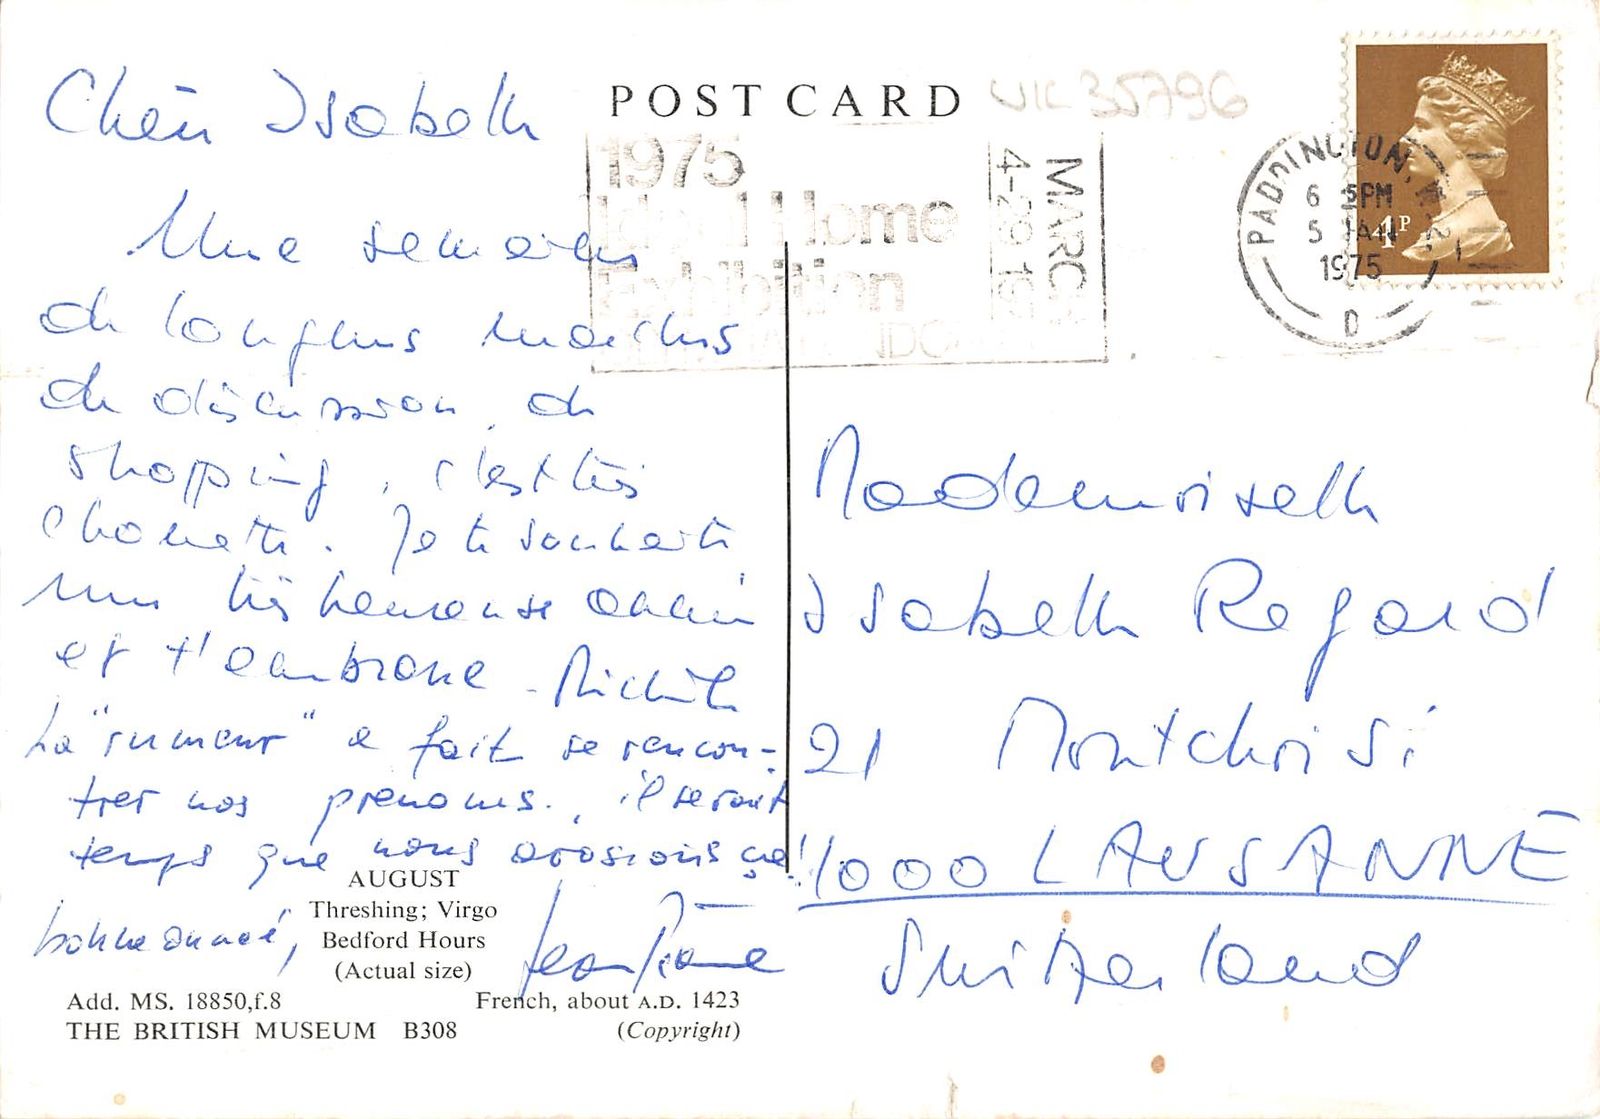 POST CARD
UK 35796
1975
Ideal Home
Exhibition
MARCH
4-29 19
PADDINGTON, W.2.
6 5PM
5 JAN
1975
D
4P
Chère Isabelle
Une semaine
de longues marches
de discussion, de
shopping, c'est très
chouette. Je te souhaite
une très heureuse année
et t'embrasse - Michèle
La "rumeur" a fait se rencon-
trer nos prénoms.. il serait
temps que nous arrosions ça!
bonne année,
Jean Pierre
Mademoiselle
Isabelle Regard
21 Montchoisi
1000 LAUSANNE
Switzerland
AUGUST
Threshing; Virgo
Bedford Hours
(Actual size)
Add. MS. 18850,f.8 French, about A.D. 1423
THE BRITISH MUSEUM B308 (Copyright)